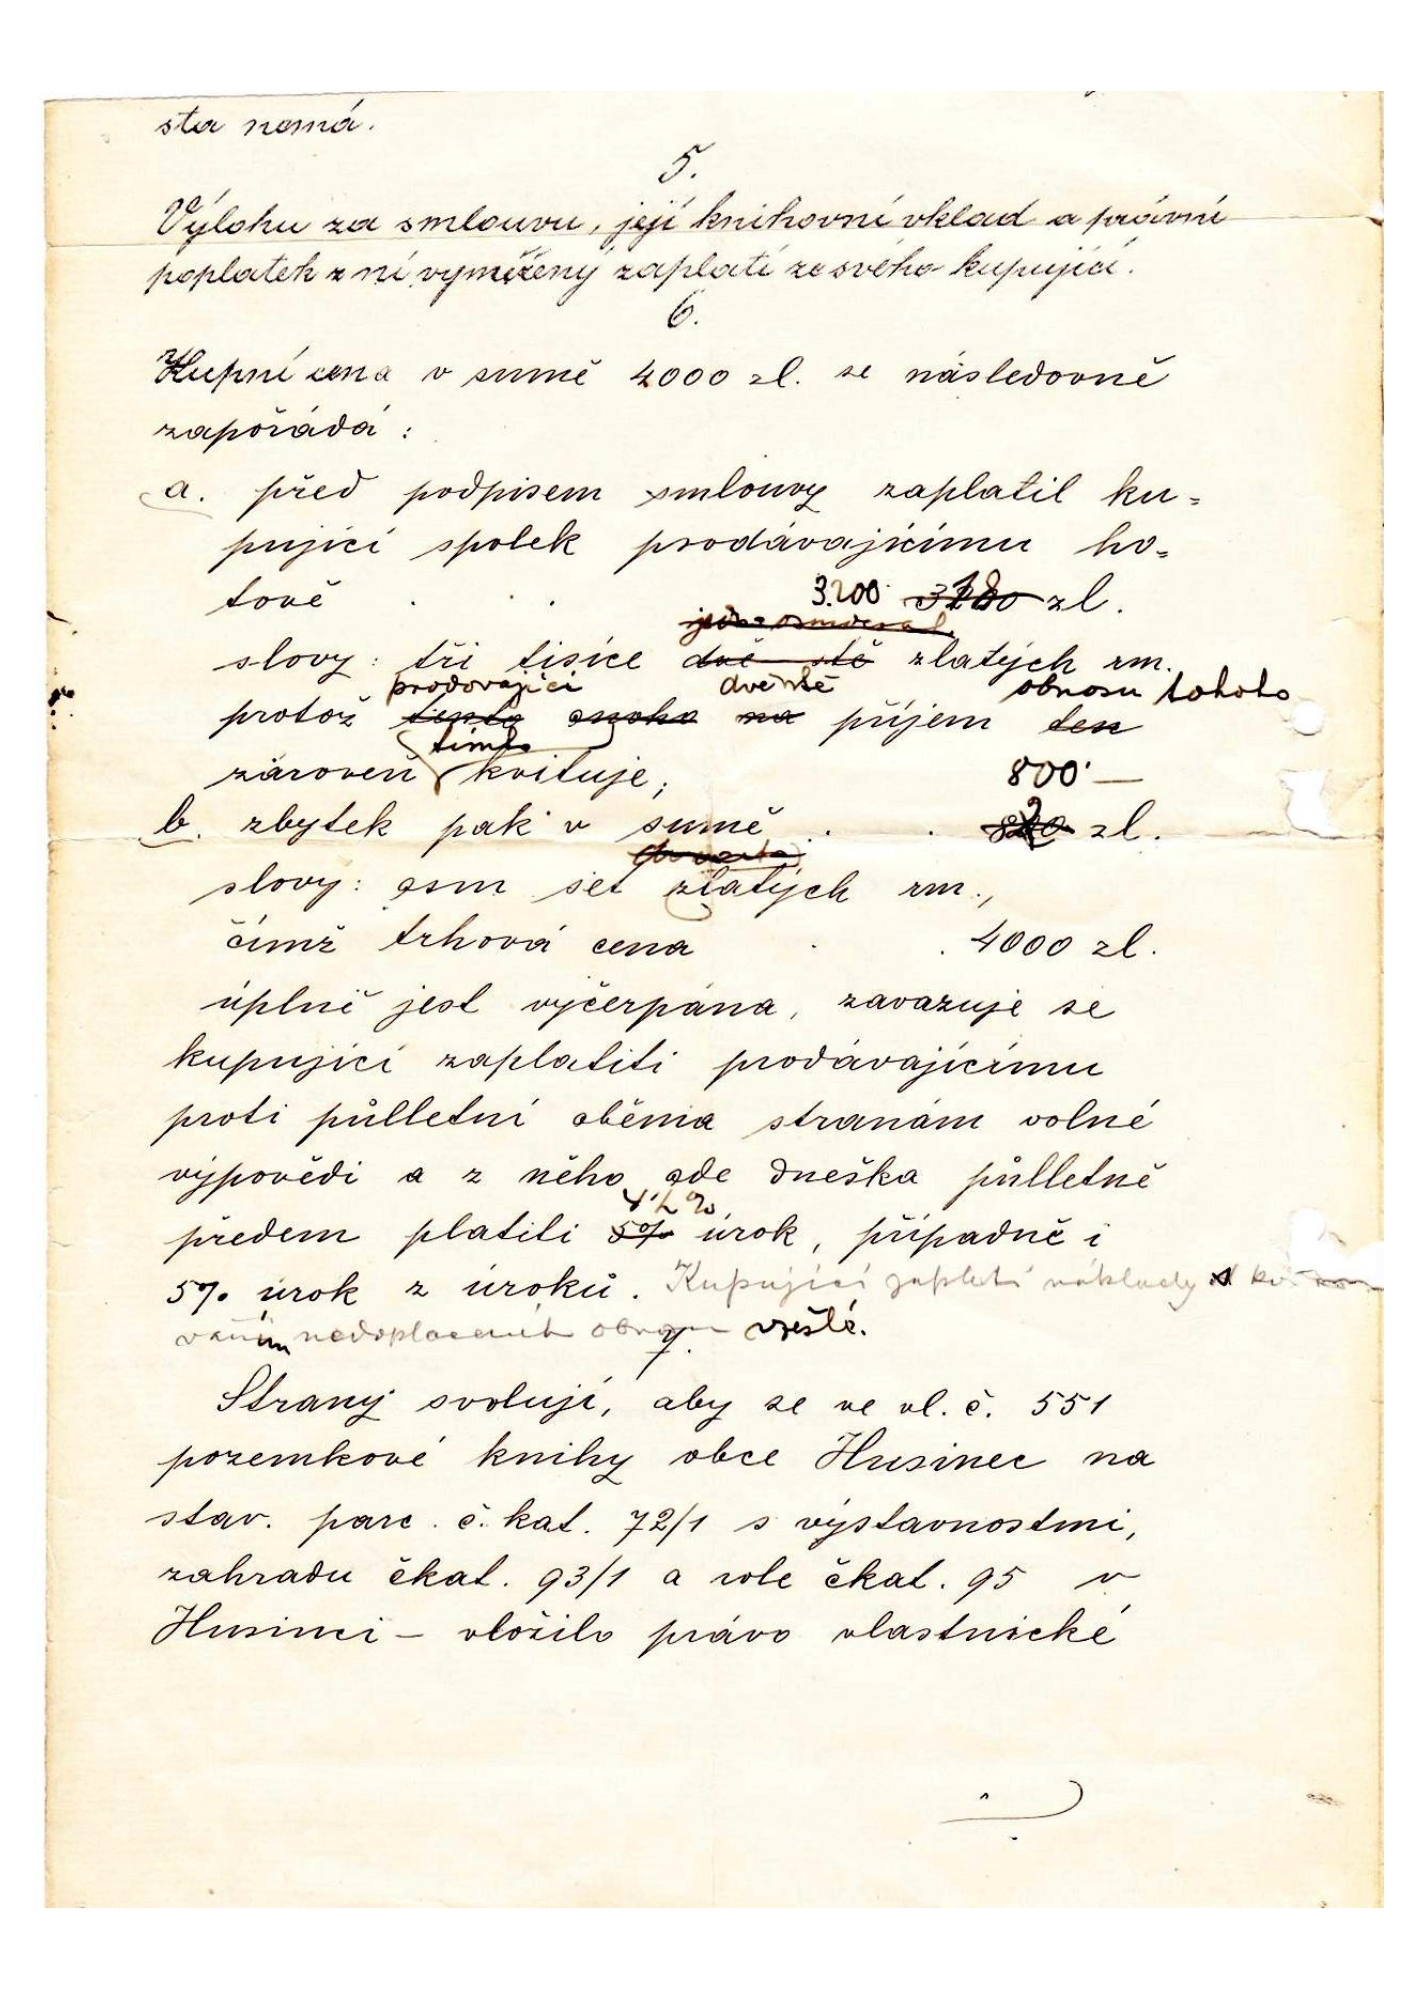 sta nemá.
5.
Výlohu za smlouvu, její knihovní vklad a právní
poplatek z ní vyměřený zaplatí ze svého kupující.
6.
Kupní cena v sumě 4000 zl. se následovně
zapořádá:
a. před podpisem smlouvy zaplatil ku-
pující spolek prodávajícímu ho-
3.200
tově . . zl.
slovy: tři tisíce dvě stě zlatých rm.
prodávající dvě stě obnosu tohoto
protož tento onoho na příjem ten
tímto
zároveň kvituje;
800 —
b. zbytek pak v sumě . . zl.
slovy: osm set zlatých rm.,
čímž trhová cena . . 4000 zl.
úplně jest vyčerpána, zavazuje se
kupující zaplatiti prodávajícímu
proti půlletní oběma stranám volné
výpovědi a z něho ode dneška půlletně
4½%
předem platiti 5% úrok, případně i
5% úrok z úroků. Kupující zaplatí náklady
nedoplacených vzešlé.
7.
Strany svolují, aby se ve vl. č. 551
pozemkové knihy obce Husinec na
stav. parc. č. kat. 72/1 s výstavnostmi,
zahradu čkat. 93/1 a role čkat. 95 v
Husinci – vložilo právo vlastnické